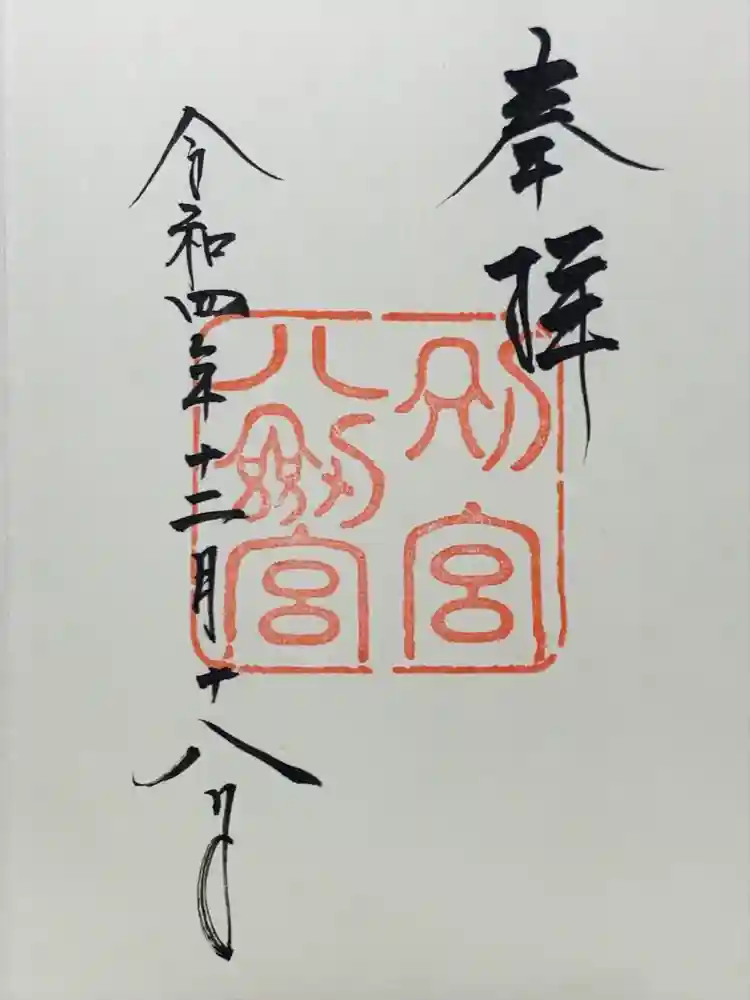 奉拝
別宮
八剱宮
令和四年十二月十八日